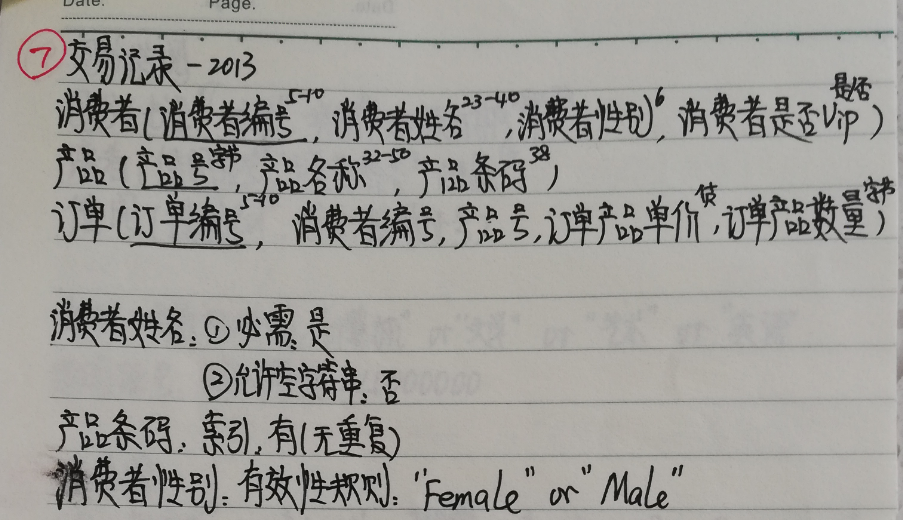 Date. Page.
⑦ 交易记录-2013
消费者(消费者编号5-10, 消费者姓名23-40, 消费者性别6, 消费者是否Vip是否)
产品(产品号字节, 产品名称32-50, 产品条码38)
订单(订单编号5-10, 消费者编号, 产品号, 订单产品单价货, 订单产品数量字节)
消费者姓名: ①必需: 是
②允许空字符串: 否
产品条码: 索引: 有(无重复)
消费者性别: 有效性规则: "Female" or "Male"